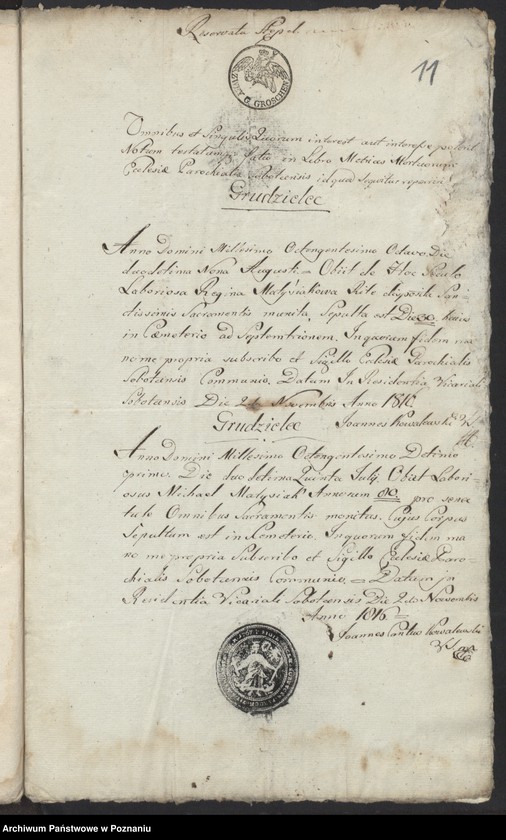 Reservata Stępel
ZWEY G. GROSCHEN
11
Omnibus et Singulis Quorum interest aut interesse poterit
Notum testatumq facio in Libro Metrices Mortuorum
Ecclesiæ Parochialis Sobotensis id quod sequitur reperiri
Grudzielec
Anno Domini Millesimo Octengentesimo Octavo Die
duodetima Nona Augusti Obiit de Hoc Seculo
Laboriosa Regina Małysiakowa Rite disposita San-
ctissimis Sacramentis munita, Sepulta est Die 30 huius
in Cæmeterio ad Septemtrionem. In quorum fidem ma
no me propria subscribo et Sigillo Eclesiæ Parochialis
Sobotensis Communio. Datum In Residentia Vicariali
Sobotensis Die 2 Novembris Anno 1816.
Grudzielec Joannes Kowalewski
Anno Domini Millesimo Octengentesimo Detimo
primo. Die duodetima Quinta Julij Obiit Labori-
osus Michael Małysiak Annorum 80. pre senec
tute Omnibus Sacramentis monitus. Cujus Corpus
Sepultum est in Cemeterio. In quorum fidem ma
no me propria Subscribo et Sigillo Eclesiæ Paro-
chialis Sobotensis Communio. Datum In
Residentia Vicariali Sobotensis Die 2 Novembris
Anno 1816
Joannes Cantius Kowalewski
Archiwum Państwowe w Poznaniu